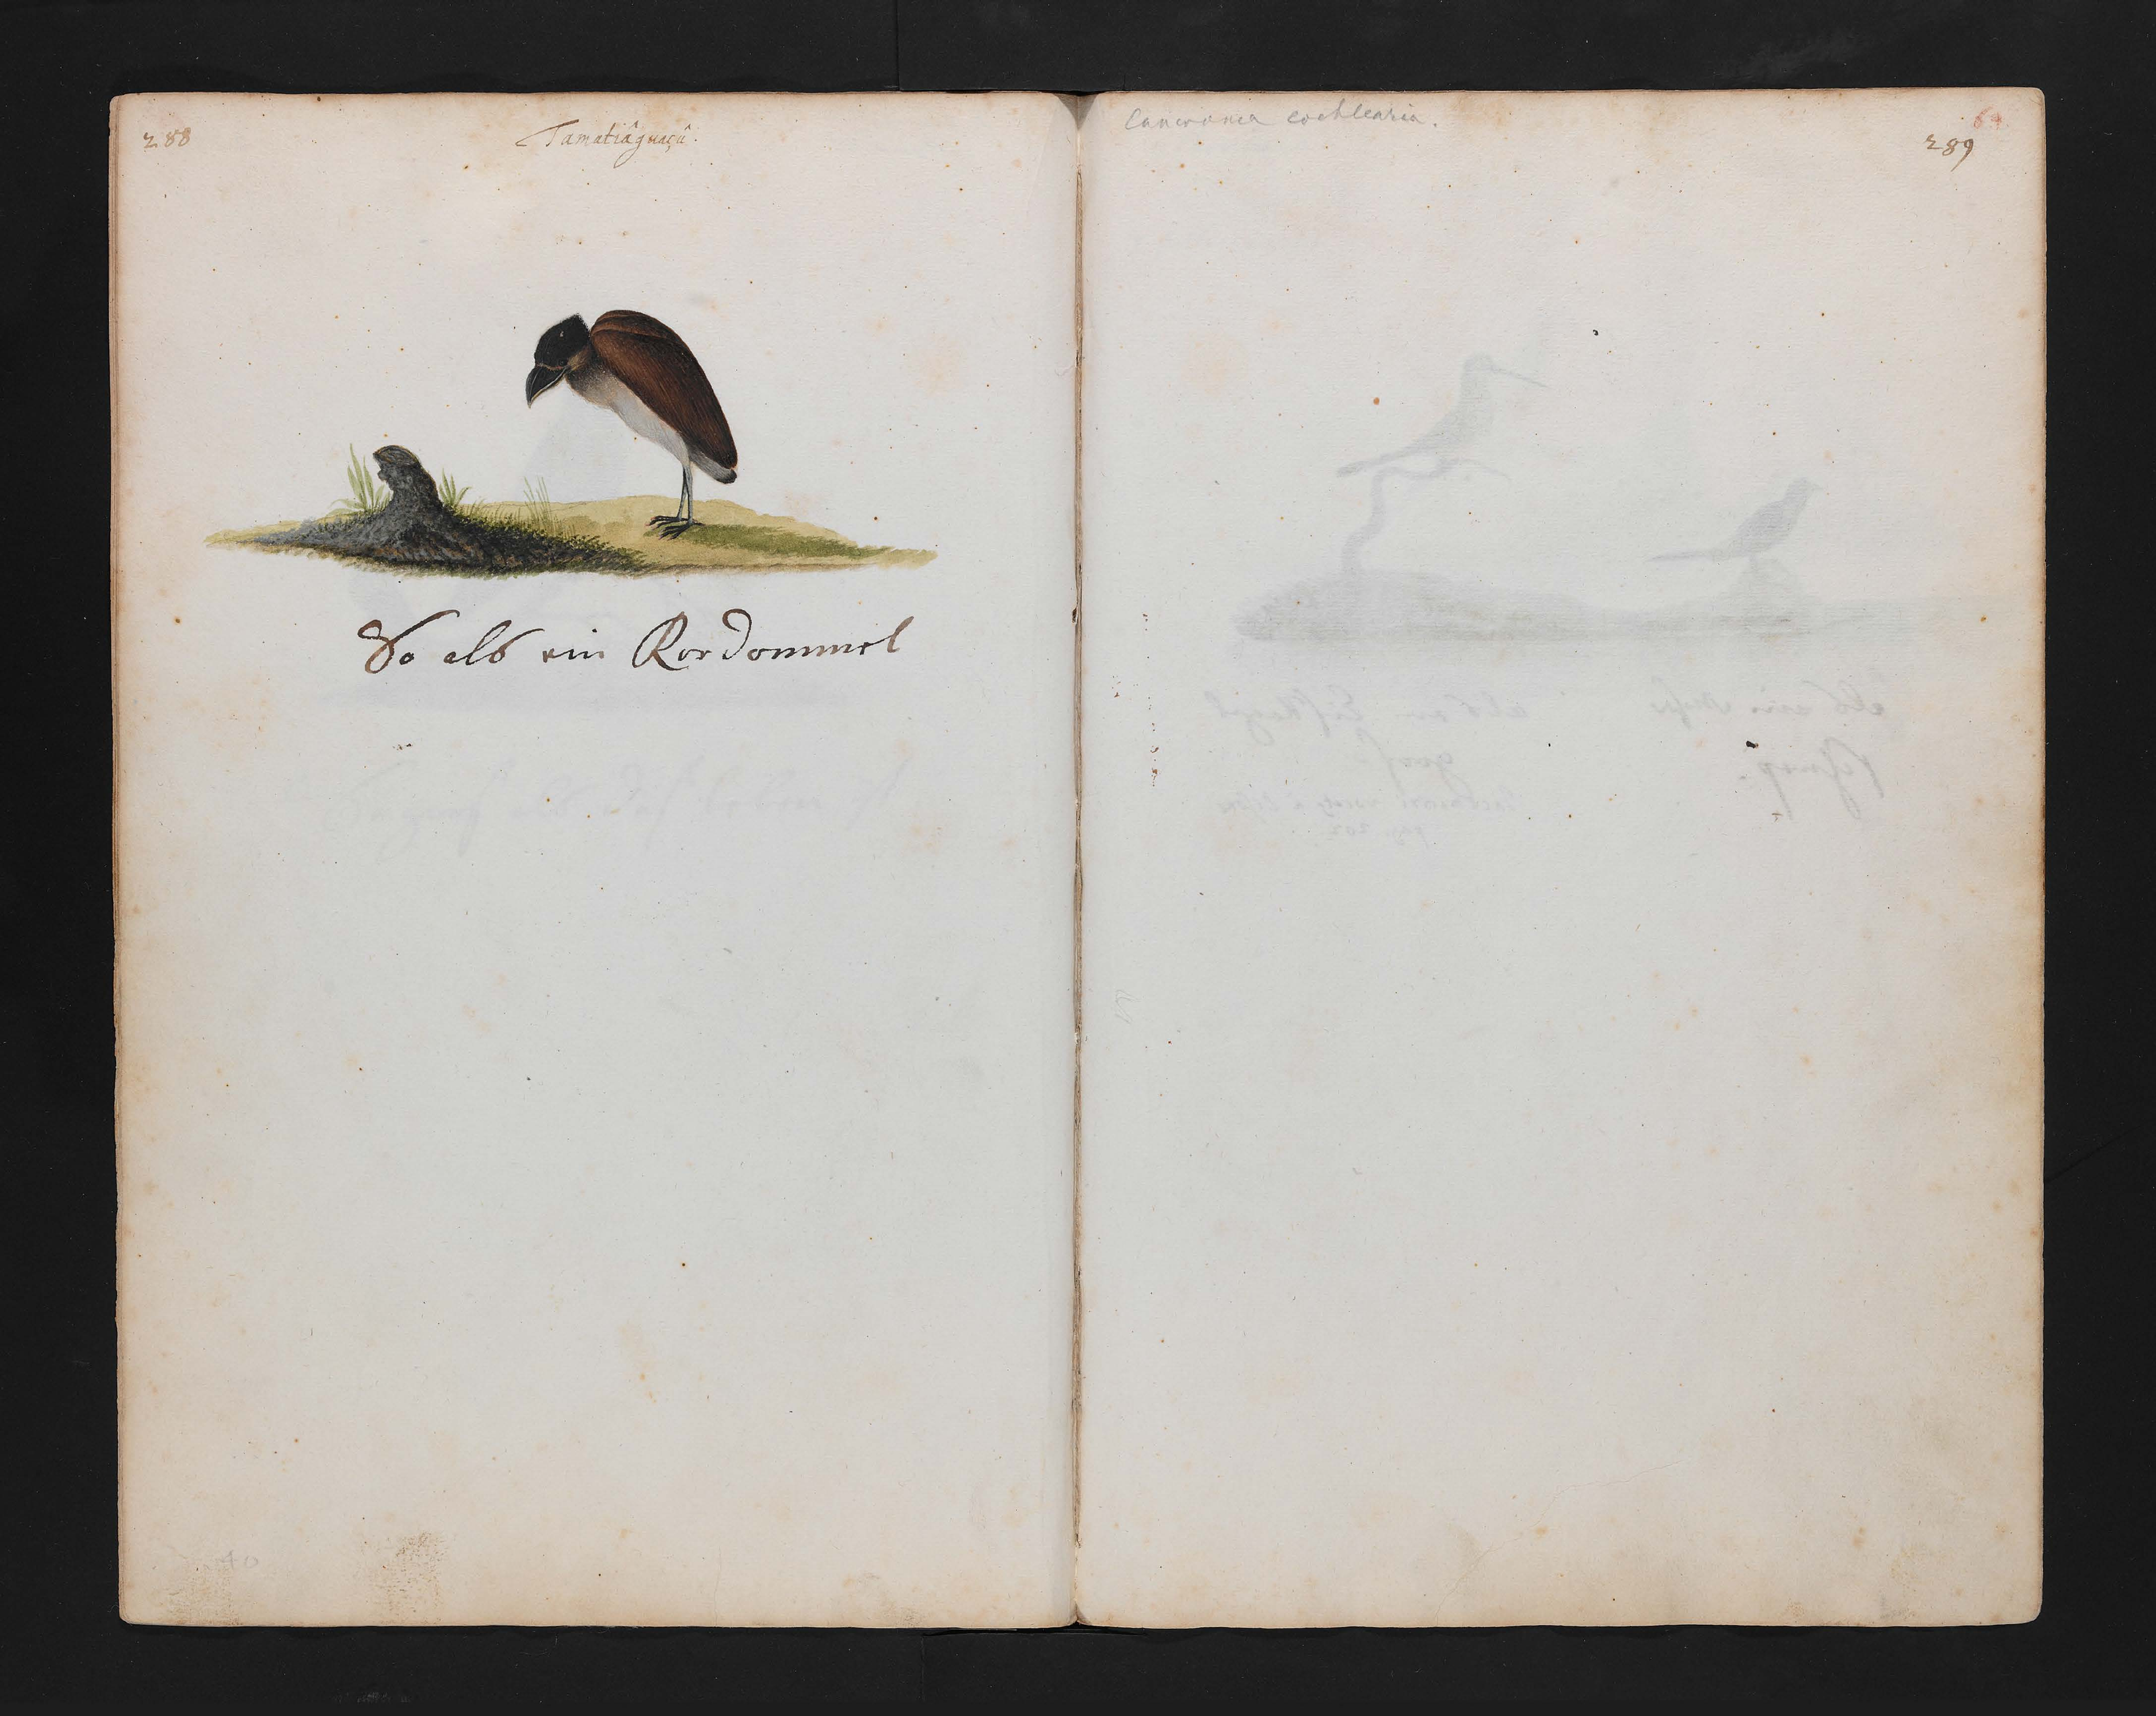 288
Tamatiâguaçû.
So als ein Rordommel
40
Cancroma cochlearia.
289